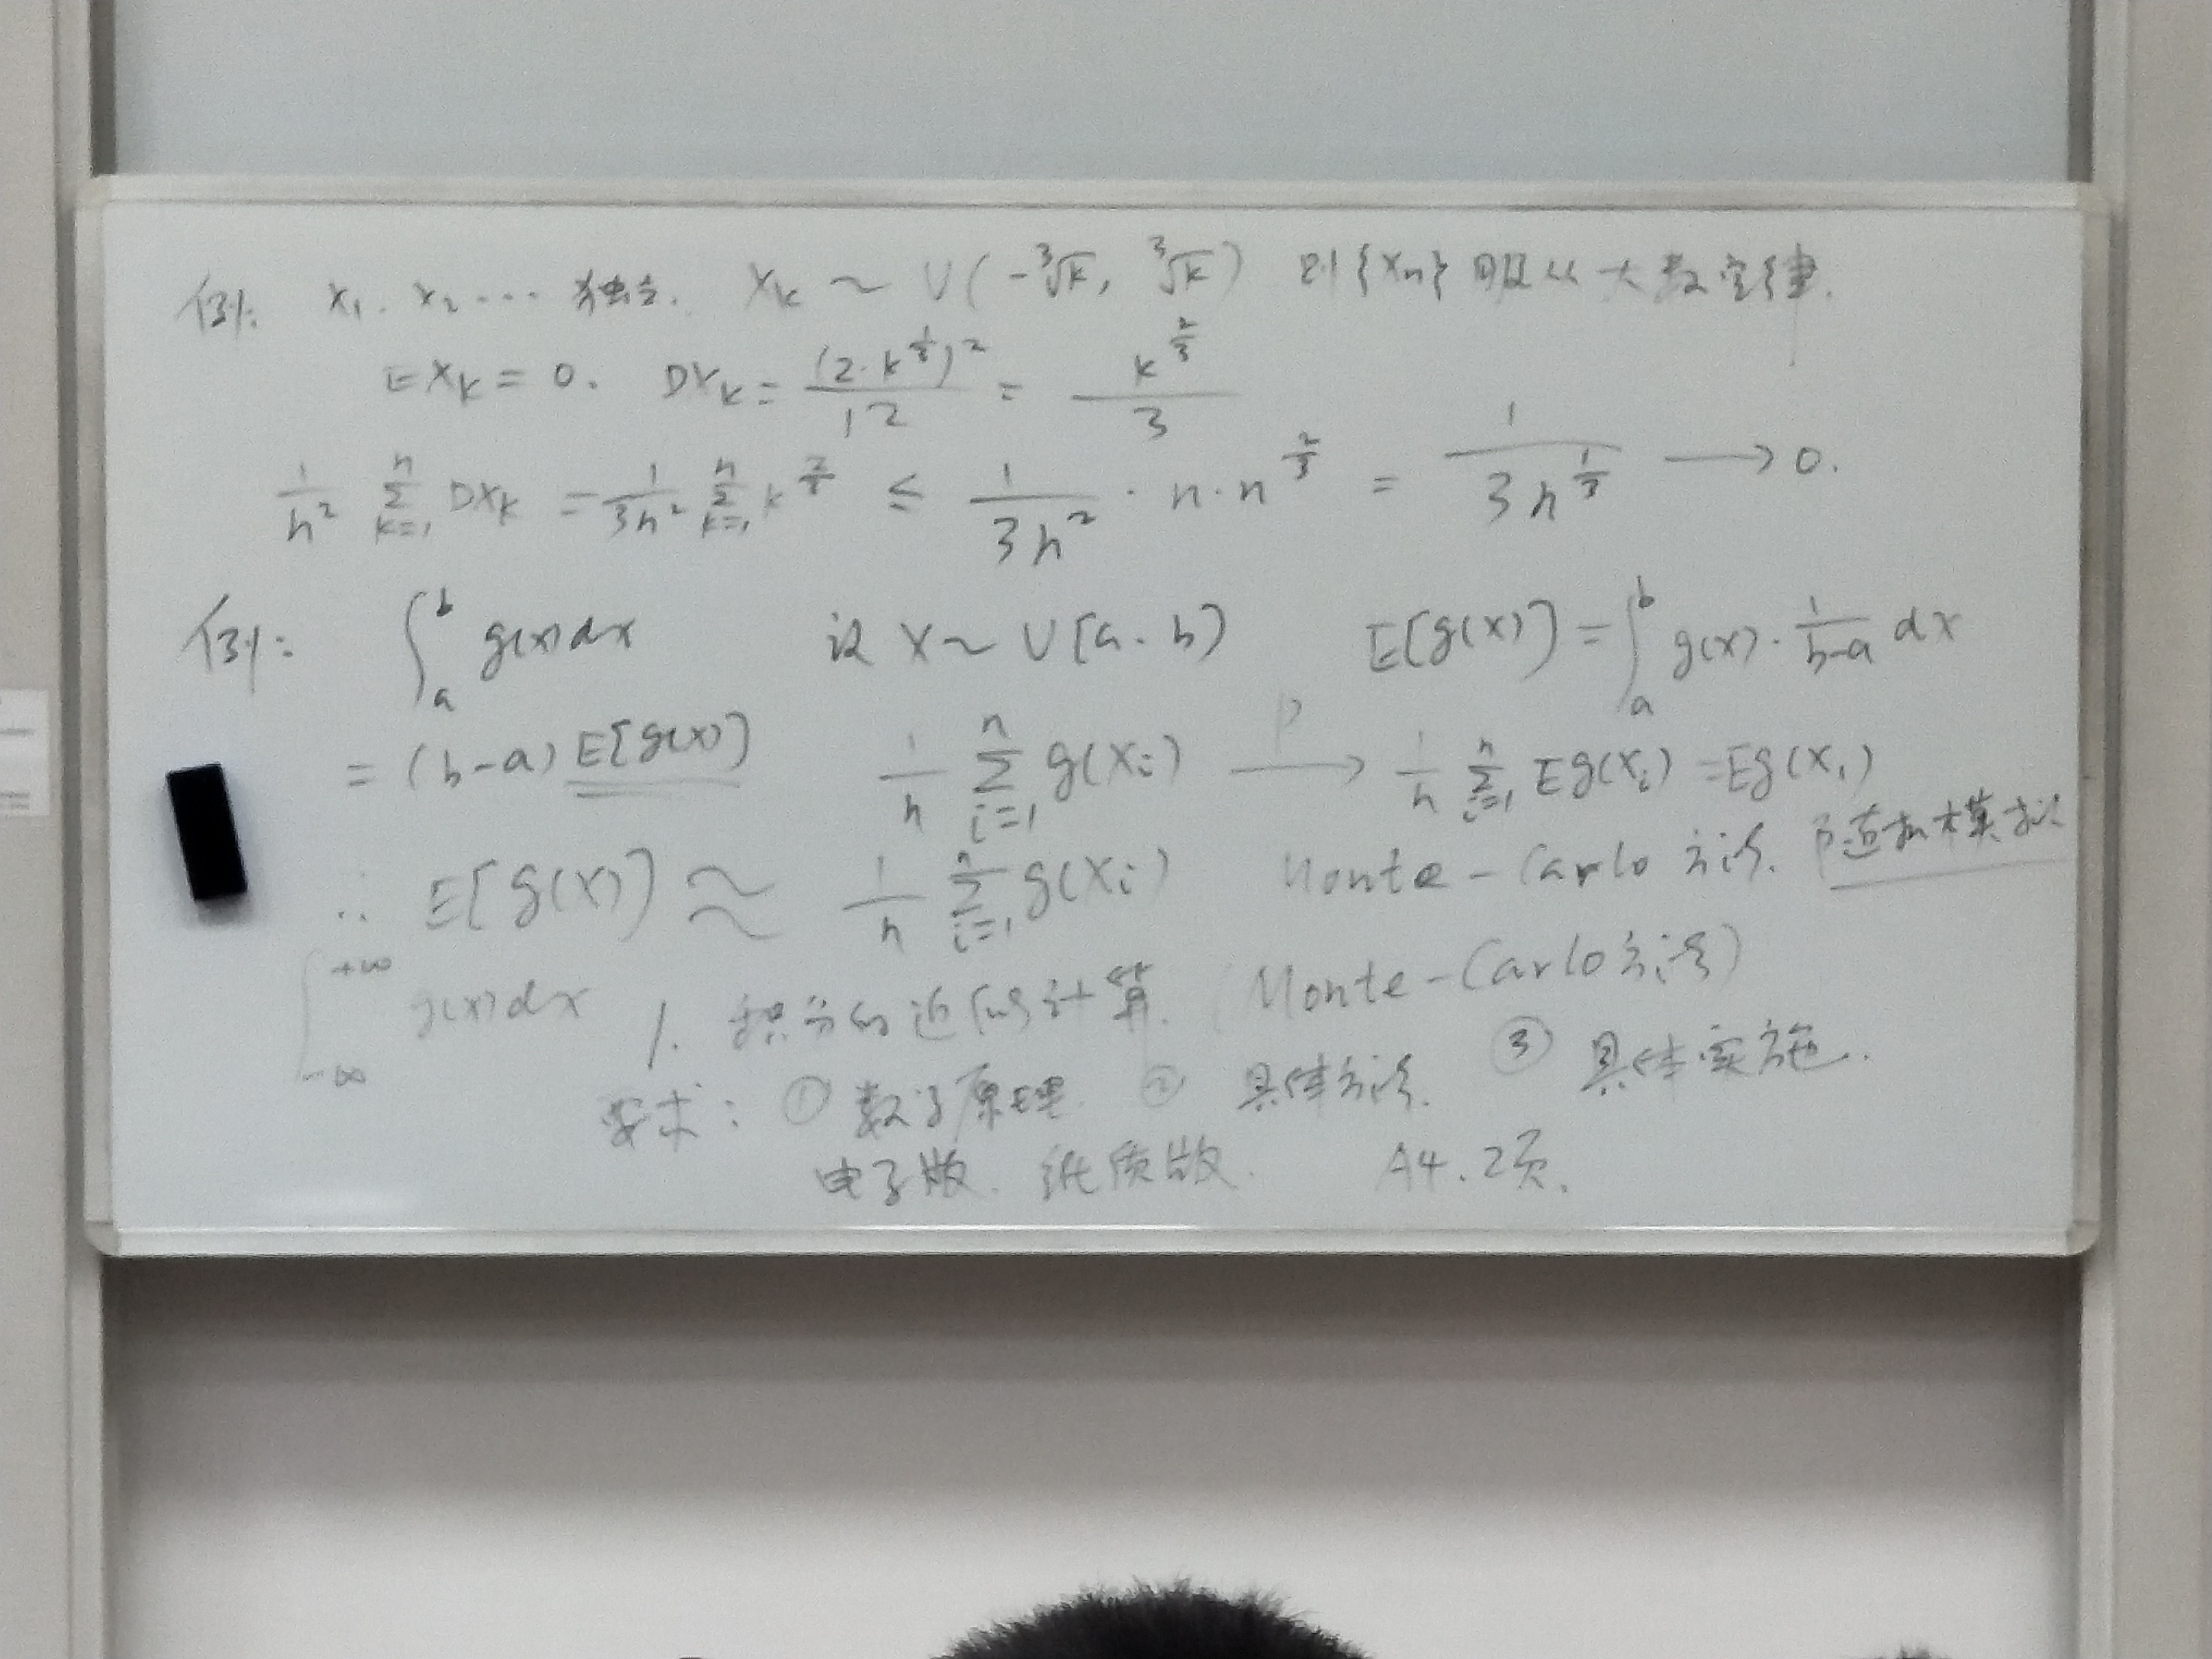 例: X₁. X₂ ⋯ 独立. X_k ~ U(-∛k, ∛k) 则{X_n}服从大数定律.
EX_k = 0. DX_k = (2·k^{1/3})²/12 = k^{2/3}/3
1/n² ∑_{k=1}^{n} DX_k = 1/3n² ∑_{k=1}^{n} k^{2/3} ≤ 1/3n² · n·n^{2/3} = 1/3n^{1/3} → 0.
例: ∫_a^b g(x)dx 设 X ~ U[a.b] E[g(X)] = ∫_a^b g(x)·1/(b-a) dx
= (b-a) E[g(X)] 1/n ∑_{i=1}^{n} g(X_i) →^P 1/n ∑_{i=1}^{n} Eg(X_i) = Eg(X₁)
∴ E[g(X)] ≈ 1/n ∑_{i=1}^{n} g(X_i) Monte-Carlo 方法. 随机模拟
∫_{-∞}^{+∞} g(x)dx 1. 积分的近似计算. (Monte-Carlo方法)
要求: ① 数学原理 ② 具体方法. ③ 具体实施.
电子版. 纸质版. A4. 2页.